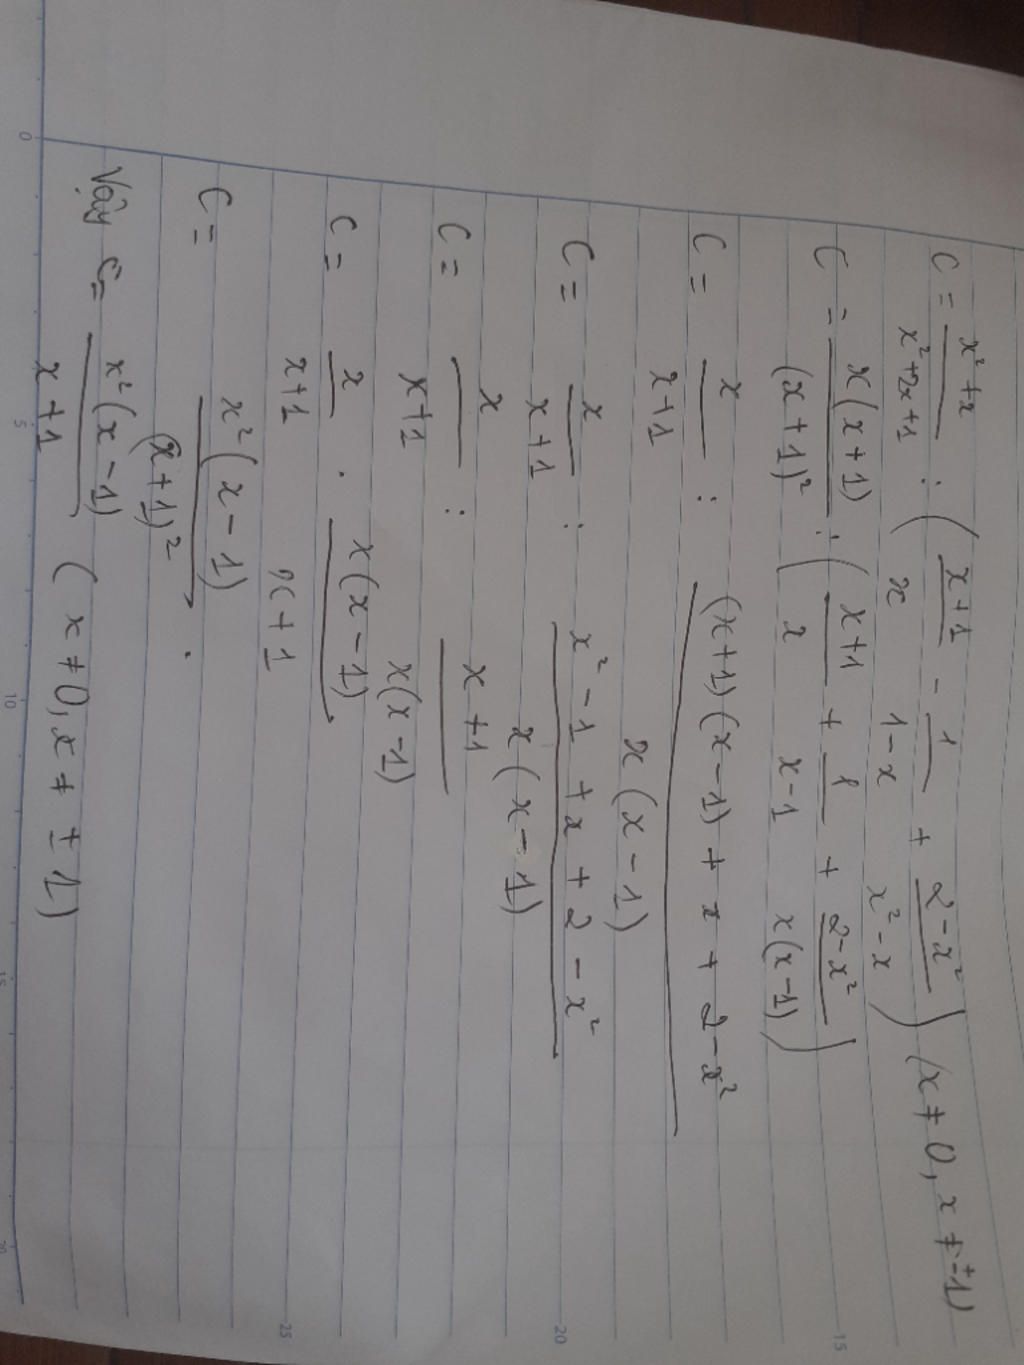 C = \frac{x^2+x}{x^2+2x+1} : ( \frac{x+1}{x} - \frac{1}{1-x} + \frac{2-x^2}{x^2-x} ) (x ≠ 0, x ≠ ±1)
C = \frac{x(x+1)}{(x+1)^2} : ( \frac{x+1}{x} + \frac{1}{x-1} + \frac{2-x^2}{x(x-1)} )
C = \frac{x}{x+1} : \frac{(x+1)(x-1) + x + 2-x^2}{x(x-1)}
C = \frac{x}{x+1} : \frac{x^2-1 + x + 2 - x^2}{x(x-1)}
C = \frac{x}{x+1} : \frac{x+1}{x(x-1)}
C = \frac{x}{x+1} . \frac{x(x-1)}{x+1}
C = \frac{x^2(x-1)}{(x+1)^2} .
Vậy C = \frac{x^2(x-1)}{x+1} ( x ≠ 0, x ≠ ± 1)
0
5
10
15
20
15
20
25